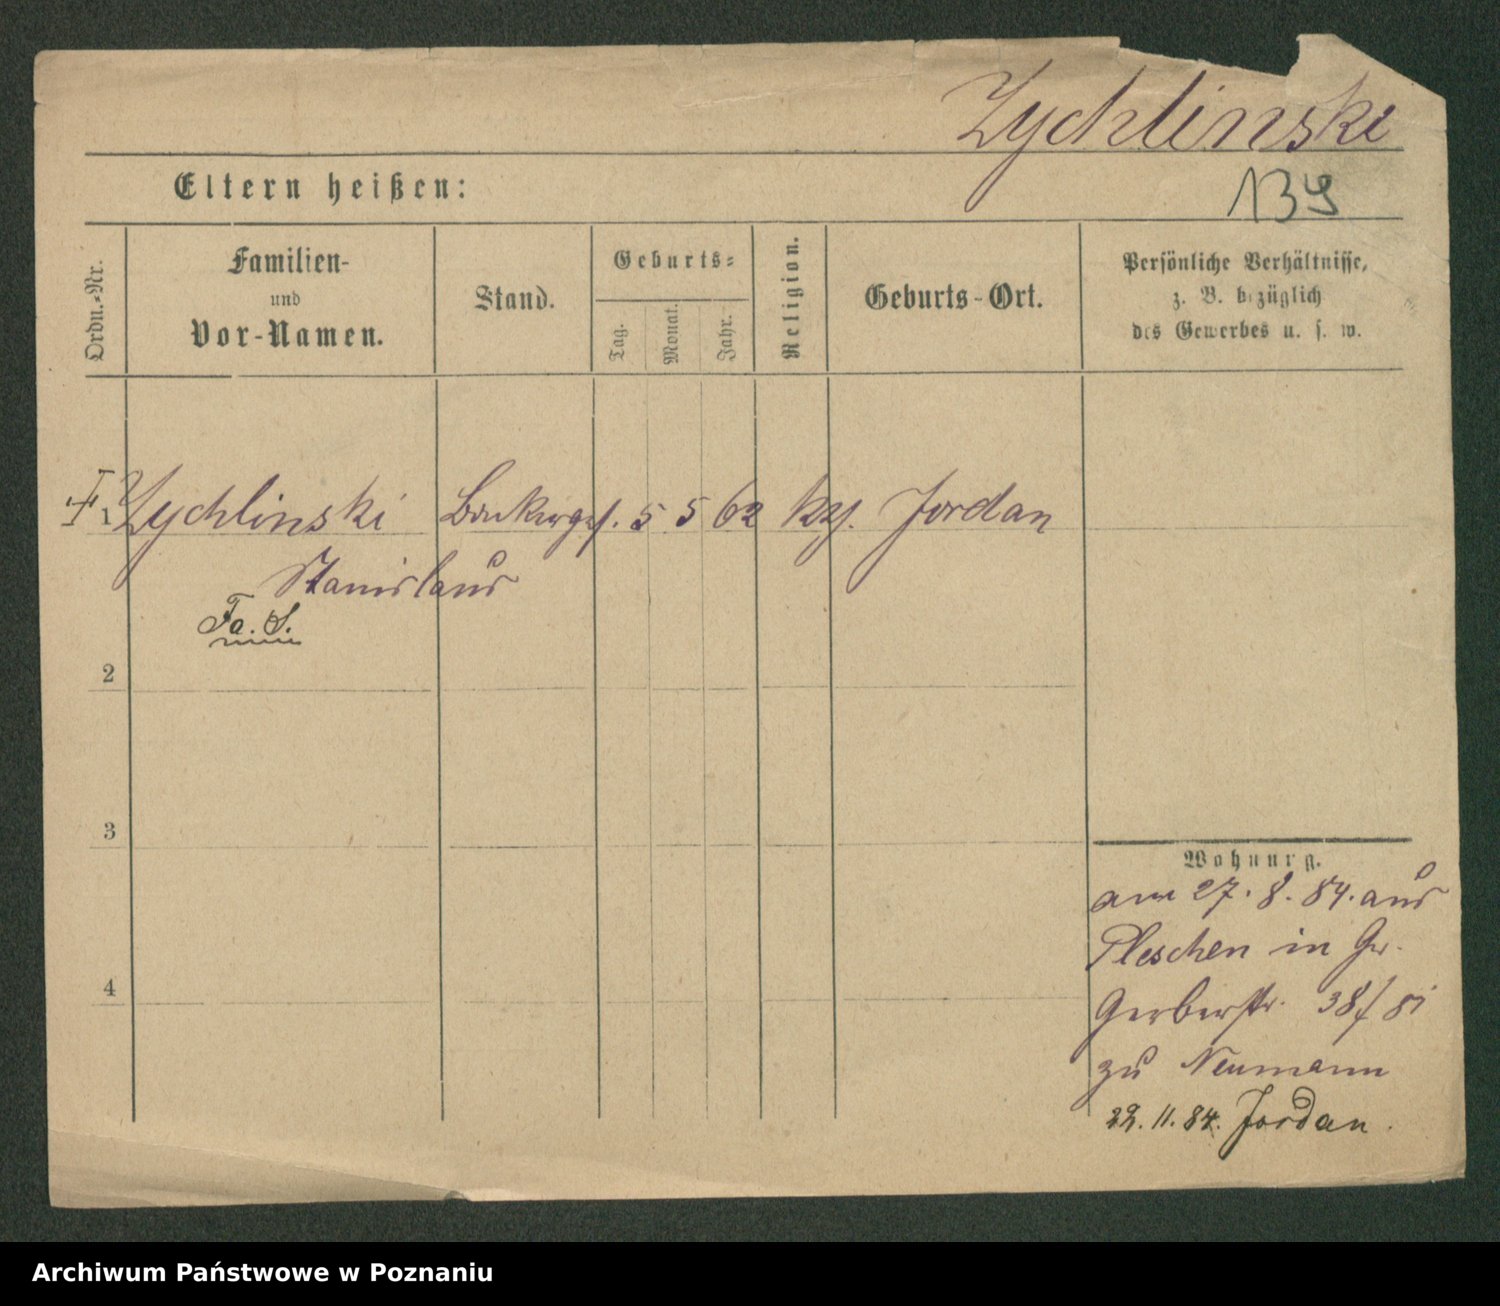 Zychlinski
139
Eltern heißen:
Ordn.-Nr.
Familien-
und
Vor-Namen.
Stand.
Geburts-
Tag.
Monat.
Jahr.
Religion.
Geburts-Ort.
Persönliche Verhältnisse,
z. B. bezüglich
des Gewerbes u. s. w.
1 Zychlinski 5 5 62 Jordan
Stanislaus
Fa. S.
2
3
4
Wohnung.
am 27. 8. 84. aus
Pleschen in Gr.
Gerberstr. 38/
zu Neumann
22. 11. 84. Jordan.
Archiwum Państwowe w Poznaniu